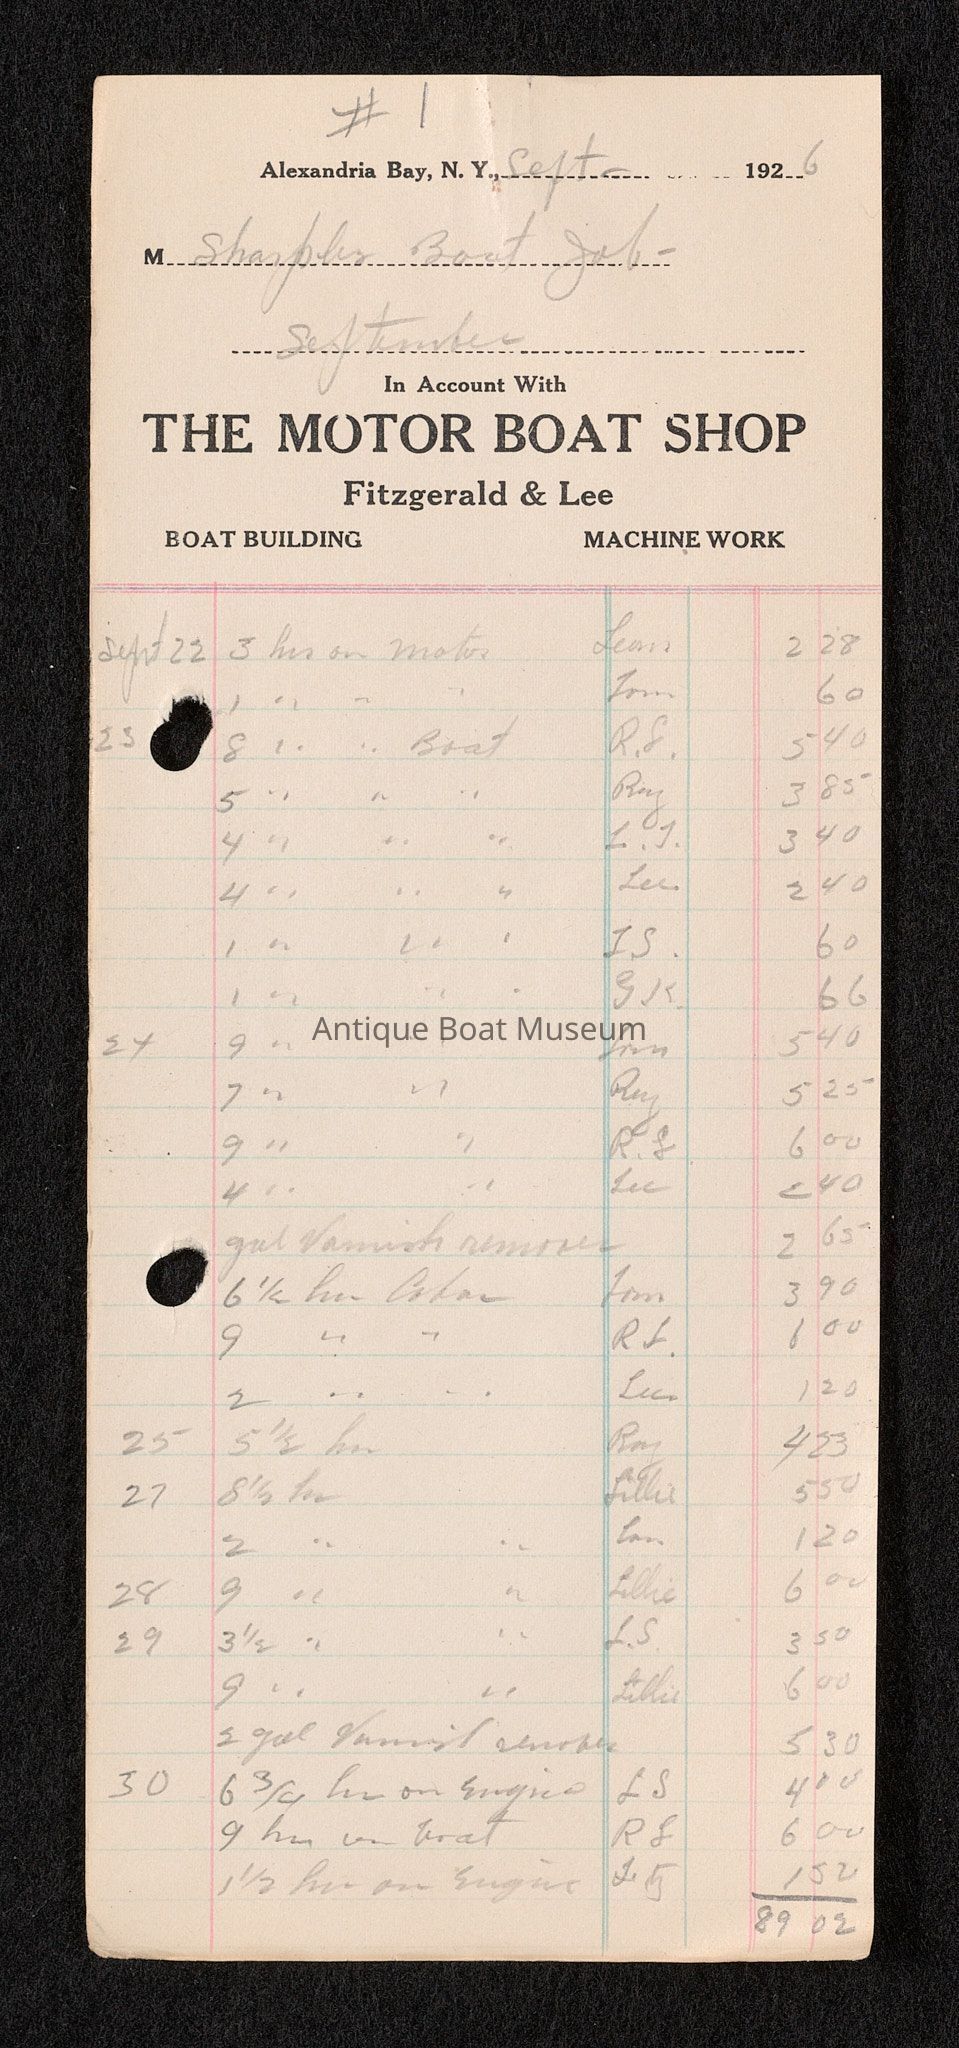 # 1
Alexandria Bay, N. Y., Sept- 1926
M Sharples Boat Job-
September
In Account With
THE MOTOR BOAT SHOP
Fitzgerald & Lee
BOAT BUILDING MACHINE WORK
Sept 22 3 hrs on motor 2 28
1 " " " Tom 60
23 8 " " Boat R.L. 5 40
5 " " " Roy 3 85
4 " " " 3 40
4 " " " Lee 2 40
1 " " " 60
1 " " " G.K. 66
Antique Boat Museum
24 9 " " Tom 5 40
7 " " Roy 5 25
9 " " R.L 6 00
4 " " Lee 2 40
gal Varnish remover 2 65
6 1/2 hrs Tom 3 90
9 " " R L. 6 00
2 " " Lee 1 20
25 5 1/2 hrs Roy 4 23
27 8 1/2 hrs Lillie 5 50
2 " " 1 20
28 9 " " Lillie 6 00
29 3 1/2 " " L.S. 3 50
9 " " Lillie 6 00
2 gal Varnish remover 5 30
30 6 3/4 hrs on Engine L S 4 00
9 hrs on boat R L 6 00
1 1/2 hrs on Engine 1 52
89 02